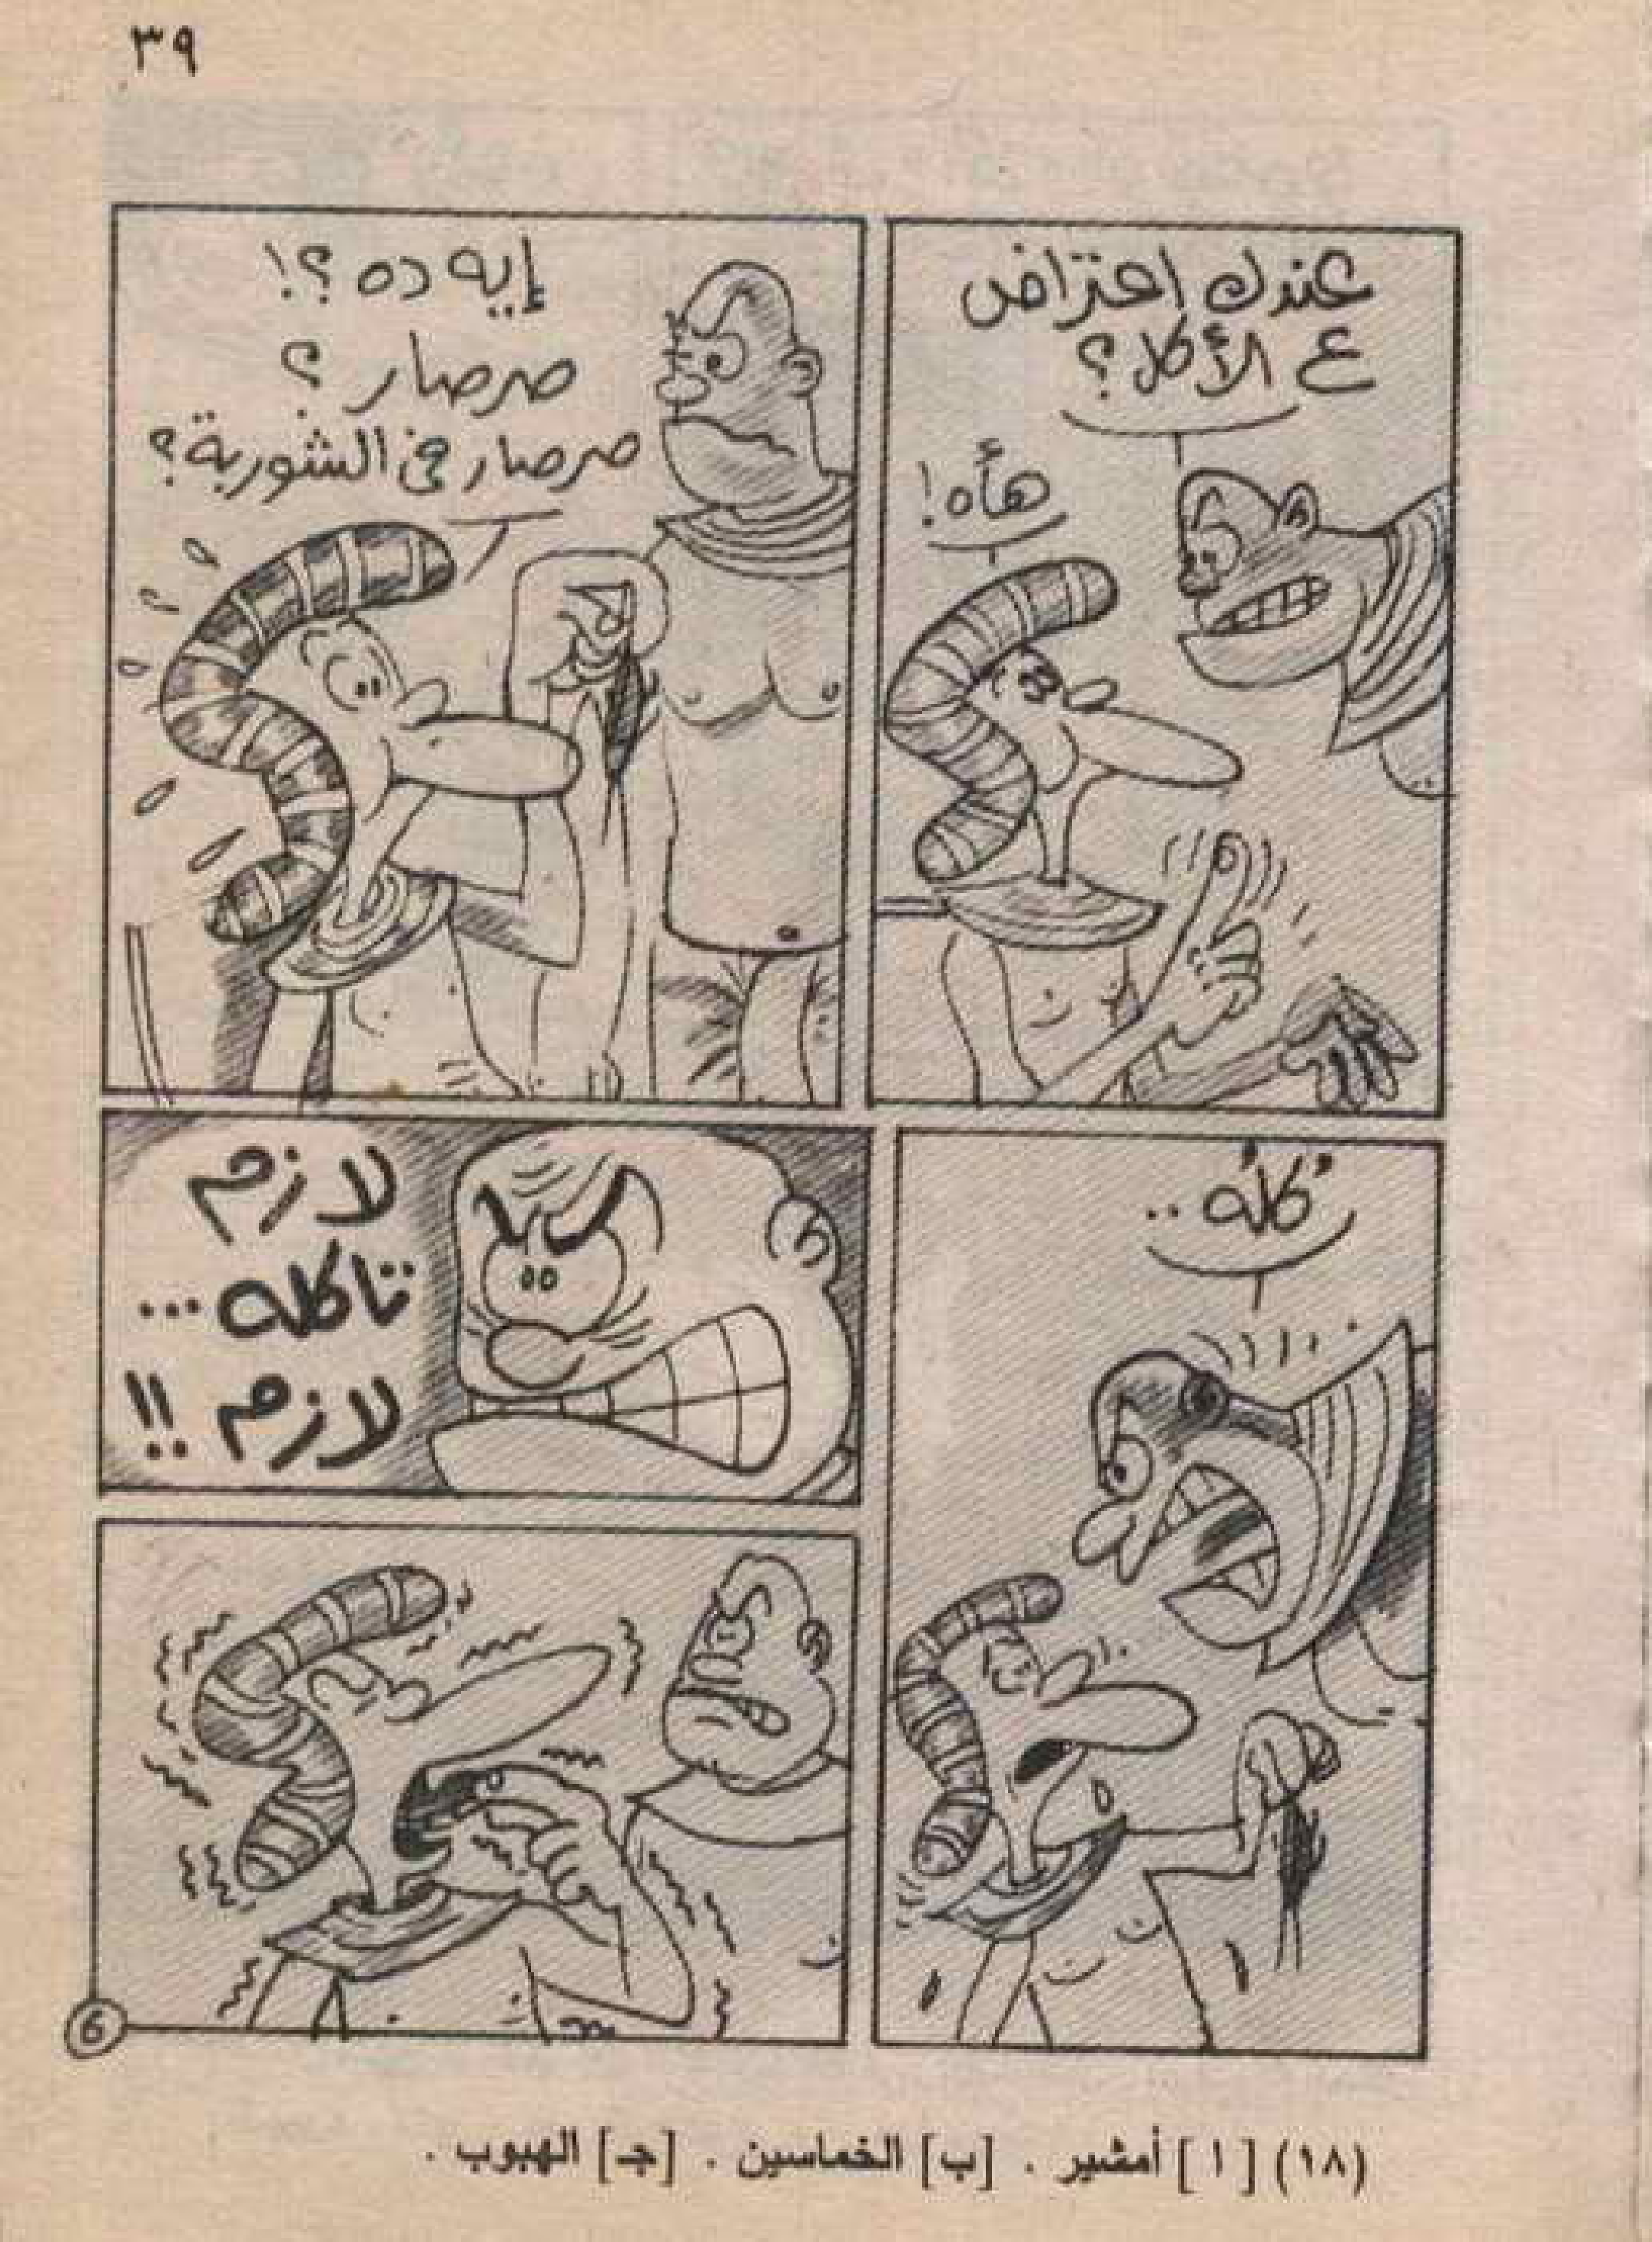 ٣٩
عندك اعتراض
ع الأكل؟
هأه!
إيه ده؟!
صرصار؟
صرصار فى الشوربة؟
كله..
لازم
تاكله...
لازم!!
6
(١٨) [ا] أمشير. [ب] الخماسين. [جـ] الهبوب.